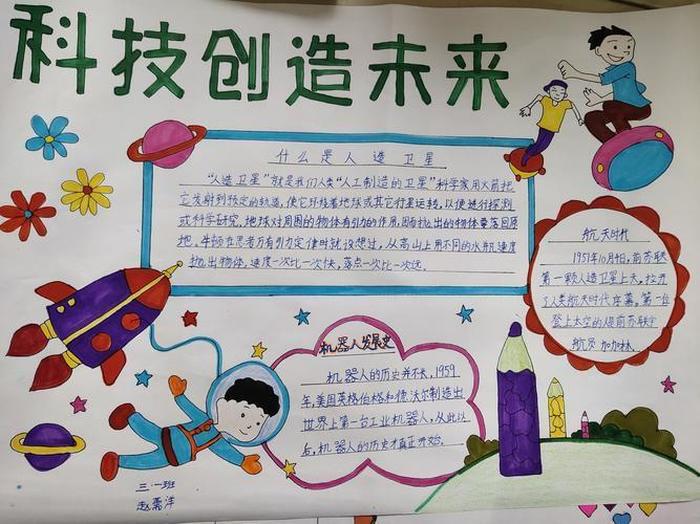 科技创造未来
什么是人造卫星
"人造卫星"就是我们人类"人工制造的卫星"科学家用火箭把
它发射到预定的轨道,使它环绕着地球或其它行星运转,以便进行探测
或科学研究。地球对周围的物体有引力的作用,因而抛出的物体要落回原
地,牛顿在思考万有引力定律时就设想过,从高山上用不同的水平速度
抛出物体,速度一次比一次快,落点一次比一次远。
航天时代
1957年10月4日,前苏联
第一颗人造卫星上天,拉开
了人类航天时代序幕,第一位
登上太空的人是前苏联宇
航员加加林。
机器人发展史
机器人的历史并不长,1959
年,美国英格伯格和德沃尔制造出
世界上第一台工业机器人,从此以
后,机器人的历史才真正开始。
三·一班
赵
洋